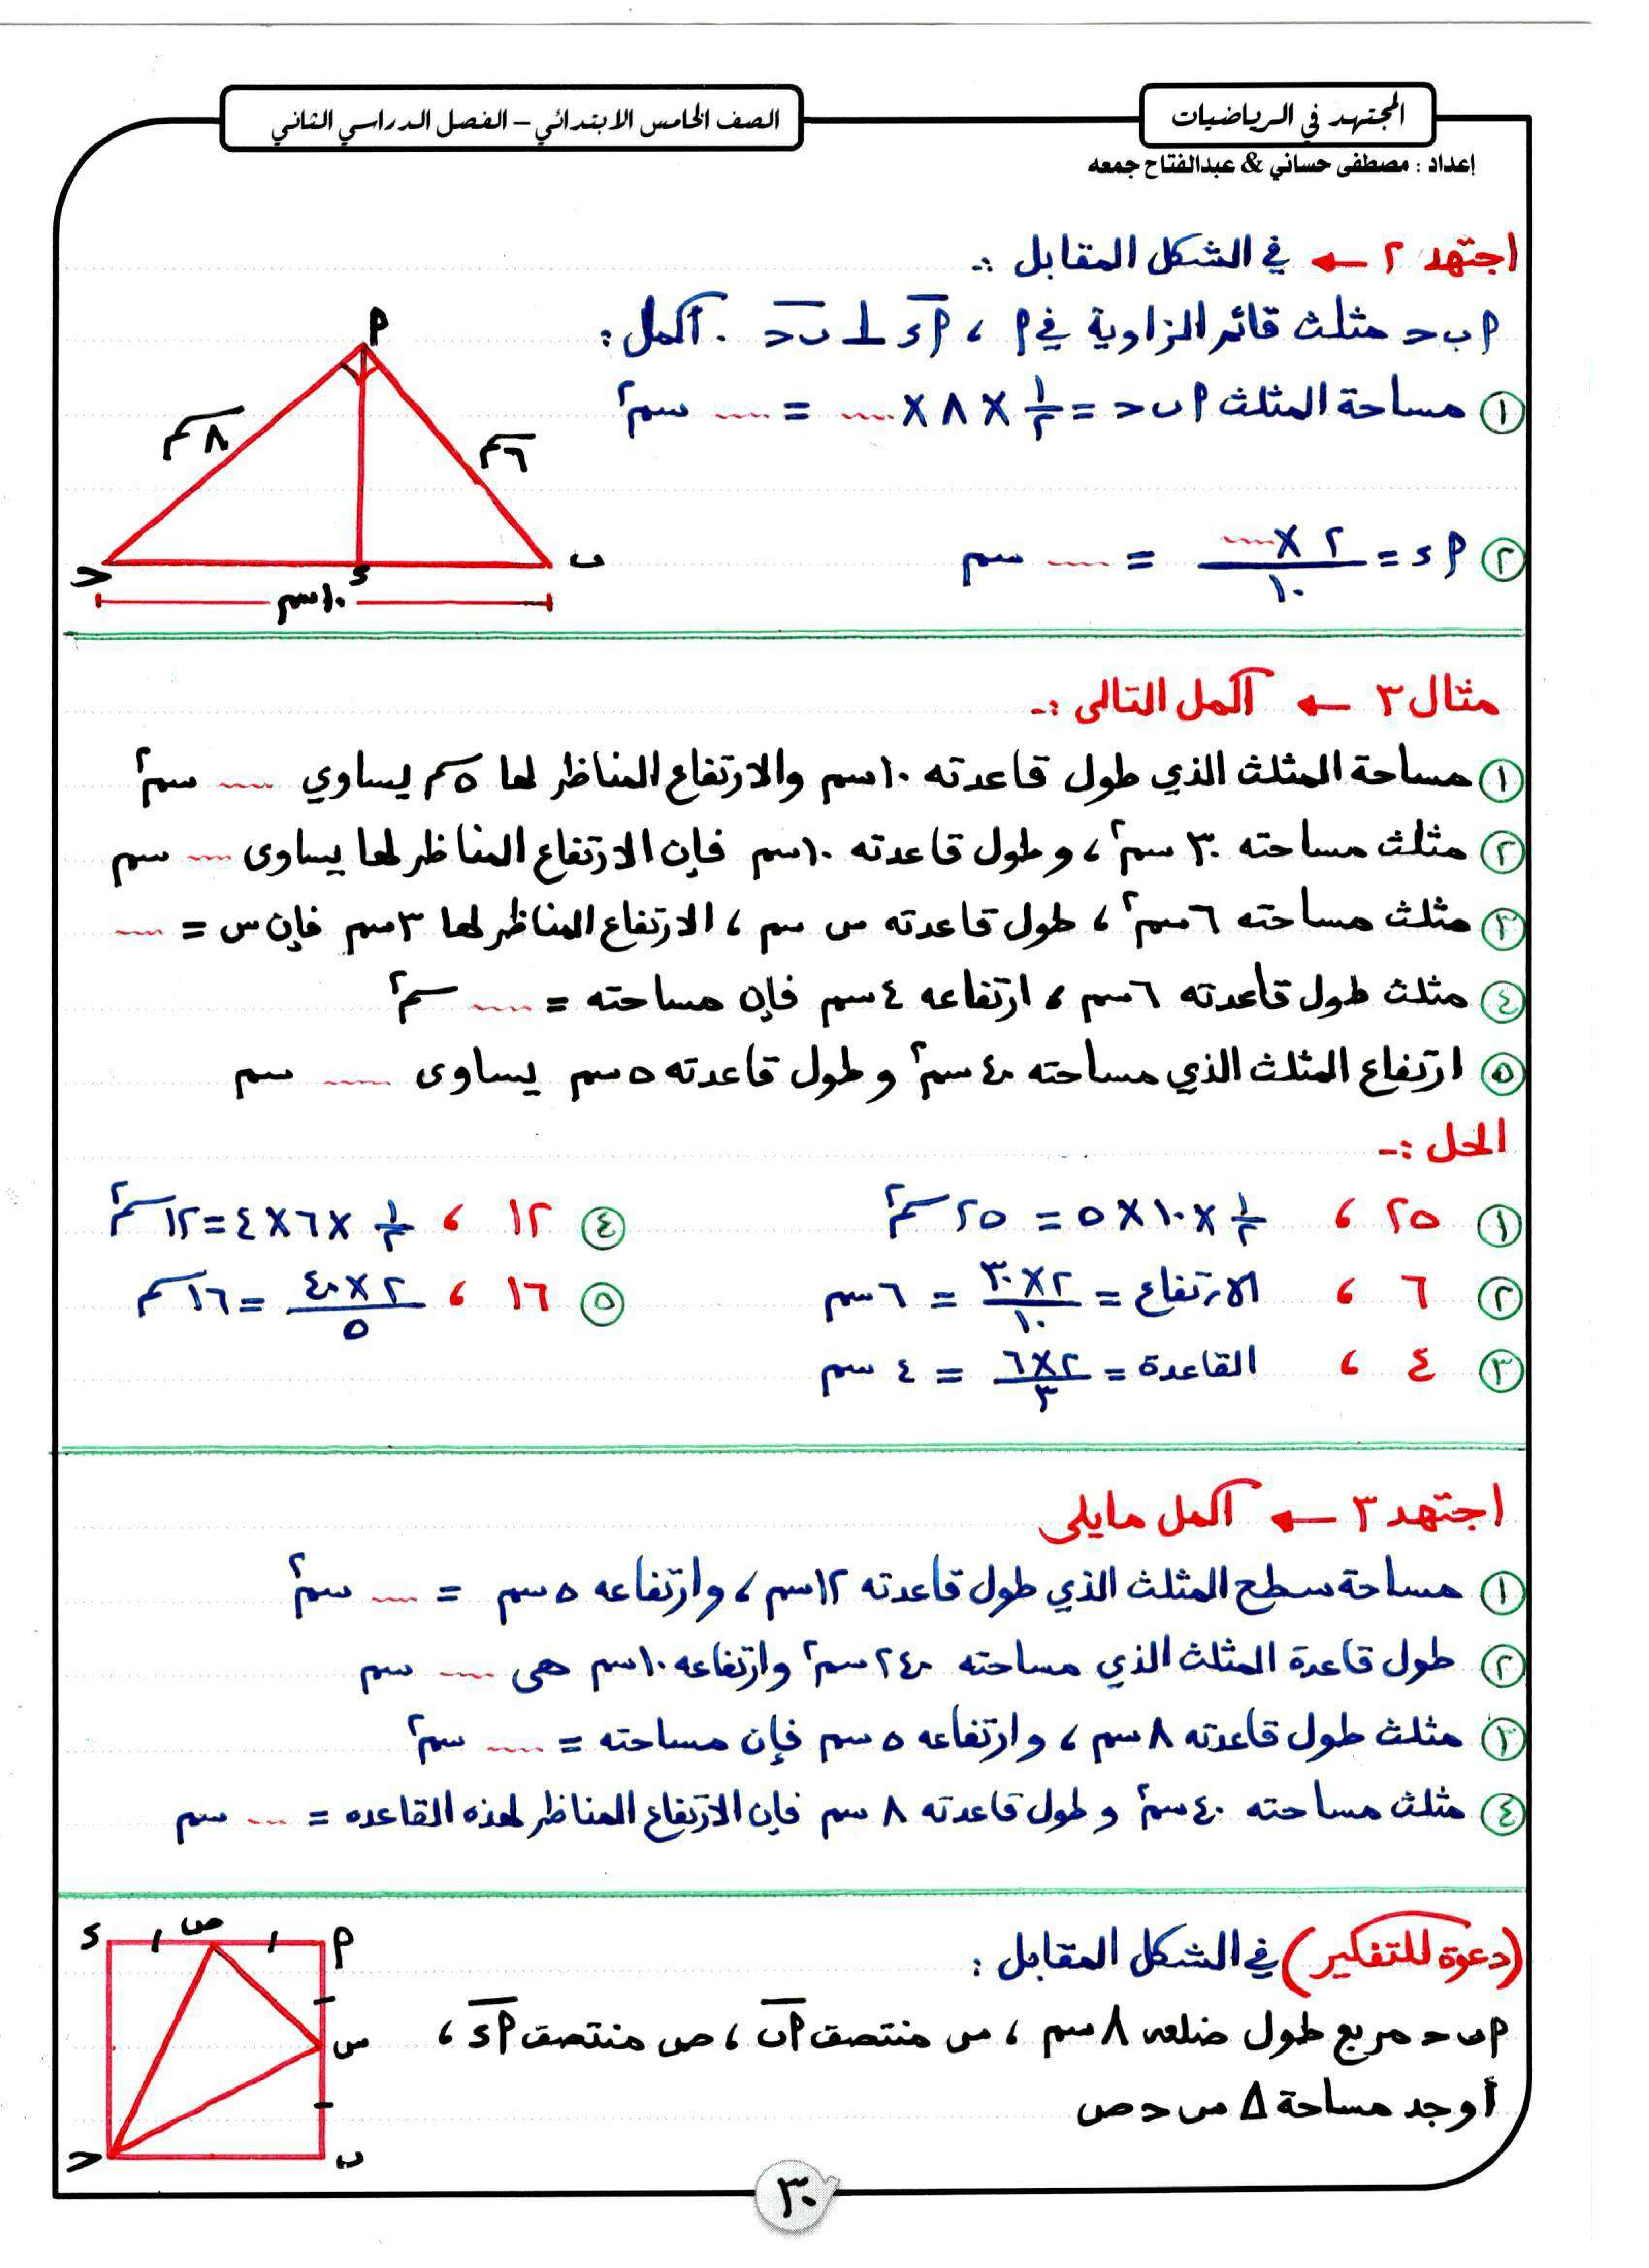 المجتهد في الرياضيات
الصف الخامس الابتدائي – الفصل الدراسي الثاني
إعداد : مصطفى حساني & عبدالفتاح جمعه
اجتهد ٢ ← في الشكل المقابل :-
م
٨سم
٦سم
ب
ء
ح
١٠سم
م ب ح مثلث قائم الزاوية في م ، م ء ⊥ ب ح . أكمل :
① مساحة المثلث م ب ح = ١/٢ × ٨ × .... = .... سم٢
② م ء = ٢ × .... / ١٠ = .... سم
مثال ٣ ← أكمل التالى :-
① مساحة المثلث الذي طول قاعدته ١٠سم والارتفاع المناظر لها ٥سم يساوي .... سم٢
② مثلث مساحته ٣٠ سم٢ ، وطول قاعدته ١٠سم فإن الارتفاع المناظر لها يساوى .... سم
③ مثلث مساحته ٦سم٢ ، طول قاعدته س سم ، الارتفاع المناظر لها ٣سم فإن س = ....
④ مثلث طول قاعدته ٦سم ، ارتفاعه ٤سم فإن مساحته = .... سم٢
⑤ ارتفاع المثلث الذي مساحته ٤٠سم٢ وطول قاعدته ٥سم يساوى .... سم
الحل :-
① ٢٥ ، ١/٢ × ١٠ × ٥ = ٢٥سم٢
④ ١٢ ، ١/٢ × ٦ × ٤ = ١٢سم٢
② ٦ ، الارتفاع = ٢ × ٣٠ / ١٠ = ٦سم
⑤ ١٦ ، ٢ × ٤٠ / ٥ = ١٦سم
③ ٤ ، القاعدة = ٢ × ٦ / ٣ = ٤ سم
اجتهد ٣ ← أكمل مايلى
① مساحة سطح المثلث الذي طول قاعدته ١٢سم ، وارتفاعه ٥سم = .... سم٢
② طول قاعدة المثلث الذي مساحته ٢٤٠سم٢ وارتفاعه ١٠سم هى .... سم
③ مثلث طول قاعدته ٨سم ، وارتفاعه ٥سم فإن مساحته = .... سم٢
④ مثلث مساحته ٤٠سم٢ وطول قاعدته ٨ سم فإن الارتفاع المناظر لهذه القاعده = .... سم
(دعوة للتفكير) في الشكل المقابل :
م ب ح مربع طول ضلعه ٨سم ، س منتصف م ب ، ص منتصف م ء ،
أوجد مساحة Δ س ح ص
ء
ص
م
س
ح
ب
٣٠